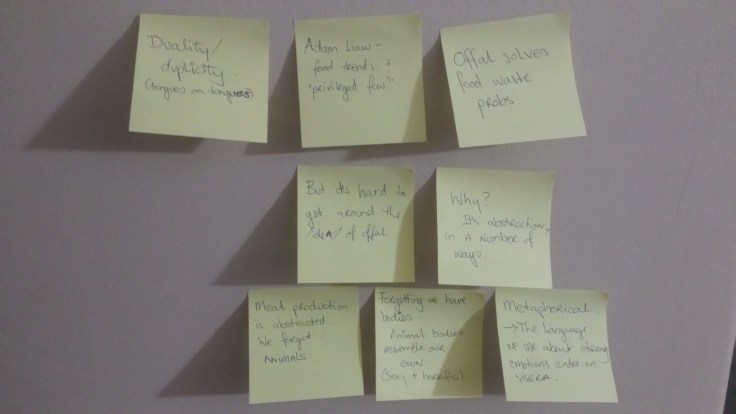 Duality/
duplicity
(tongues on tongues)
Adam Liaw -
food trends +
"privileged few"
Offal solves
food waste
probs
But it's hard to
get around the
/idea/ of offal
Why?
It's abstraction,
in a number of
ways.
Meat production
is abstracted
We forget:
Animals
Forgetting we have
bodies
Animal bodies
resemble our
own
(Sexy + horrific)
Metaphorical
→The language
we use about strong
emotions center on
VISCERA.